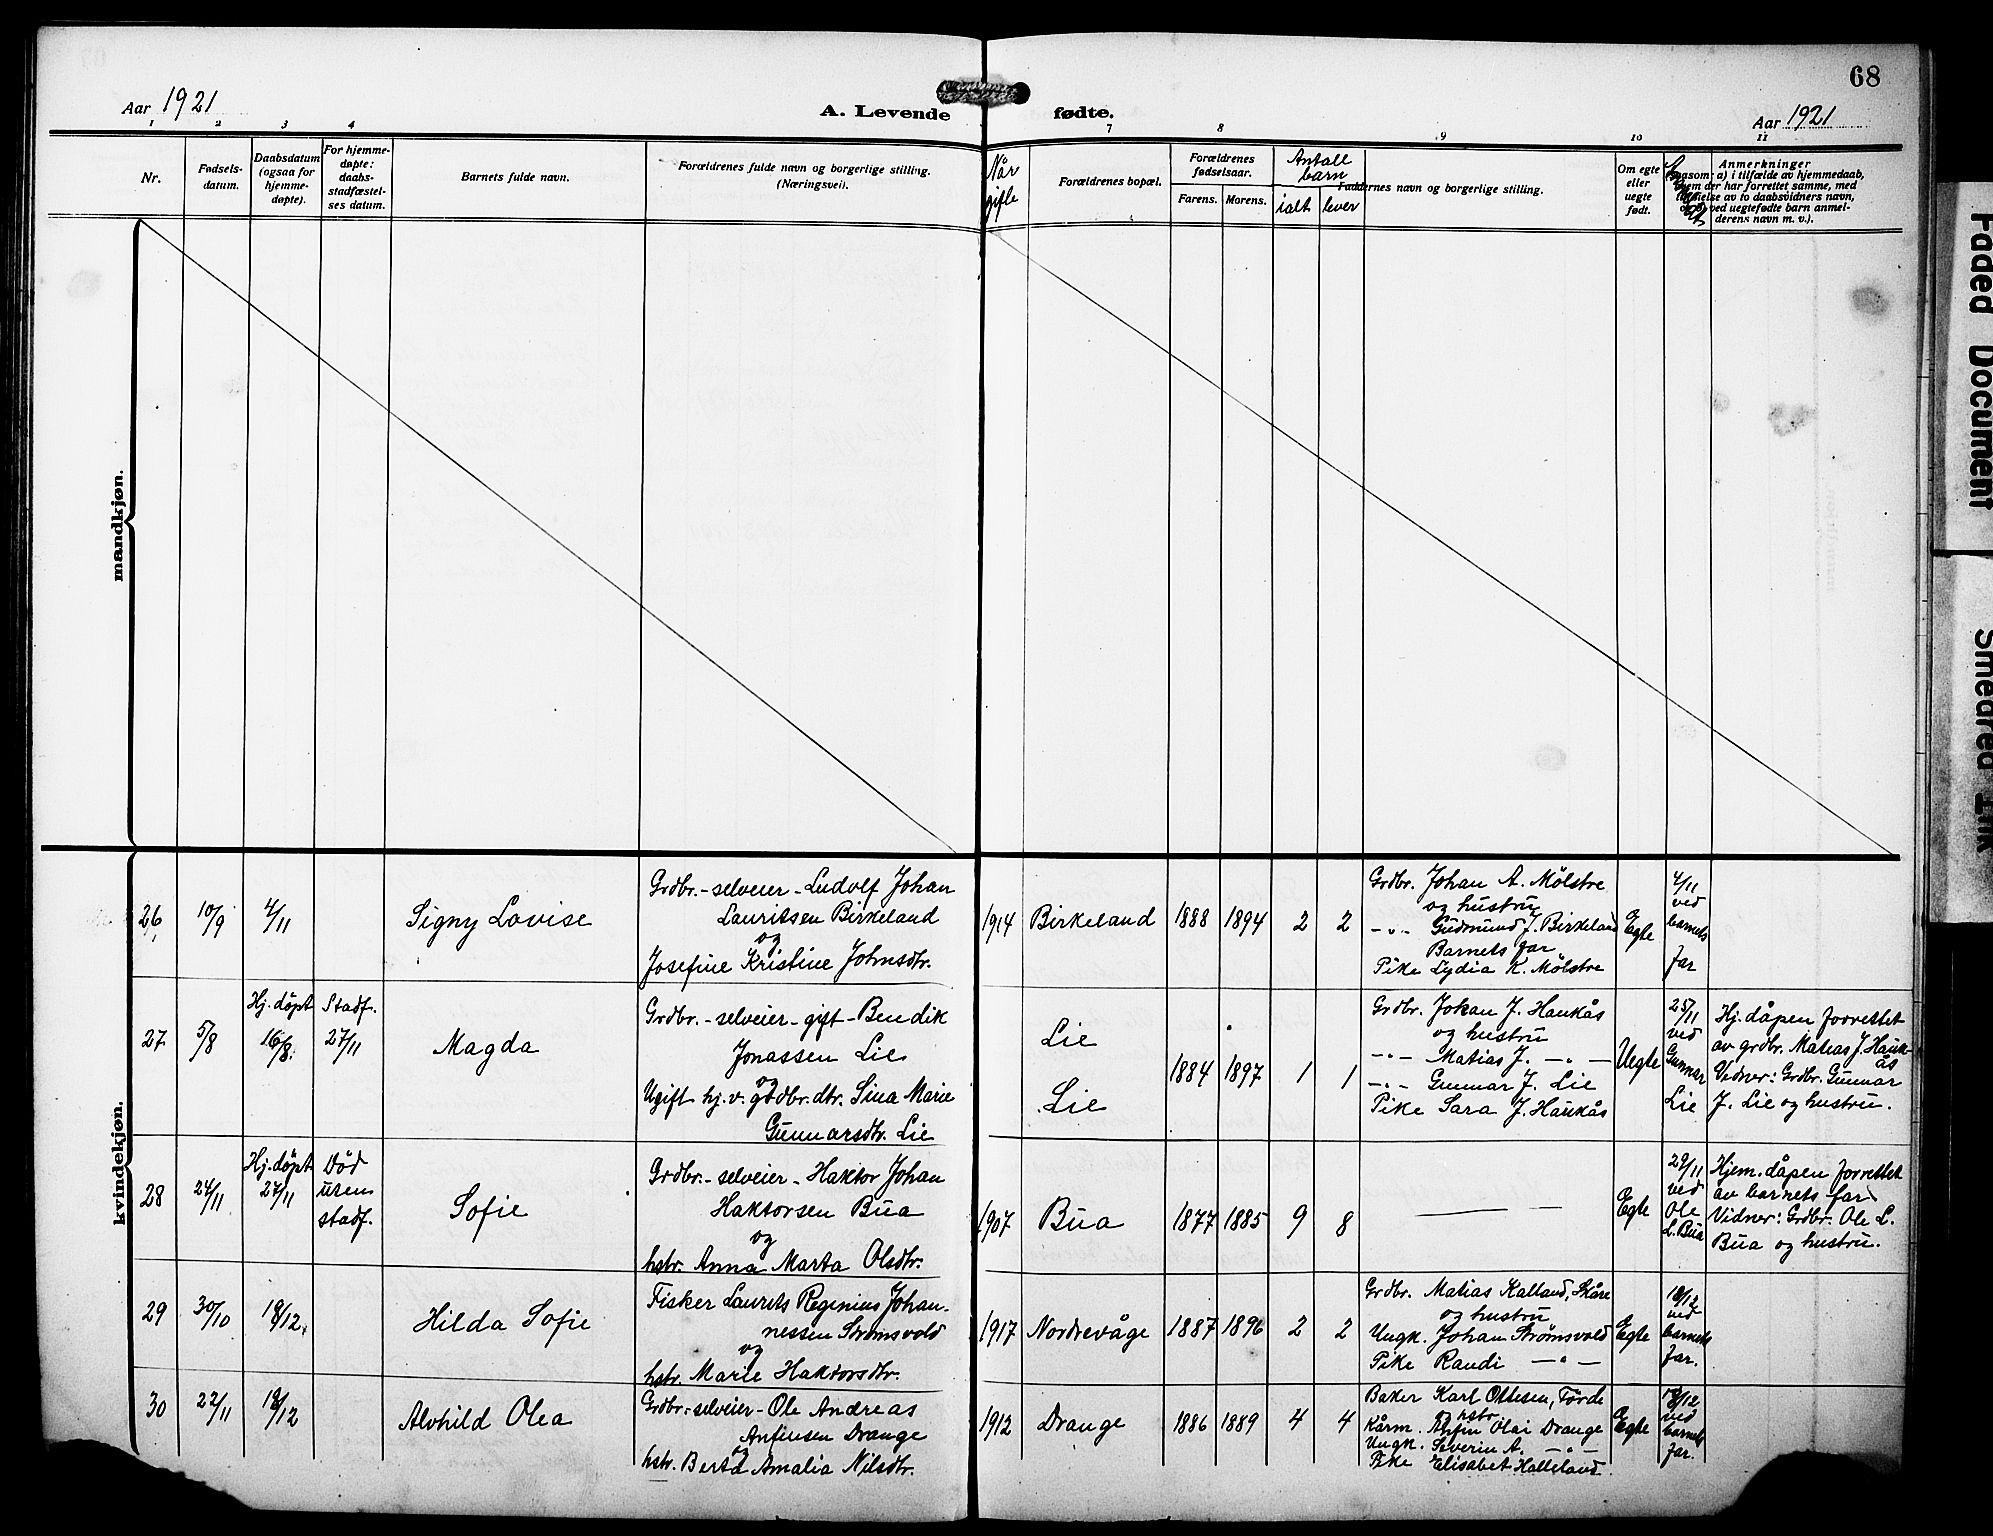 68
Aar 1921
A. Levende fødte.
Aar 1921
1 2 3 4 7 8 9 10 11
Nr.
Fødsels-
datum.
Daabsdatum
(ogsaa for
hjemme-
døpte).
For hjemme-
døpte:
daabs-
stadfæstel-
ses datum.
Barnets fulde navn.
Forældrenes fulde navn og borgerlige stilling.
(Næringsvei).
Når
gifte
Forældrenes bopæl.
Forældrenes
fødselsaar.
Farens. Morens.
Antall
barn
ialt lever
Faddernes navn og borgerlige stilling.
Om egte
eller
uegte
født.
Anmerkninger
(saasom: a) i tilfælde av hjemmedaab,
hvem der har forrettet samme, med
tilføielse av to daabsvidners navn,
ved uegtefødte barn anmel-
derens navn m. v.).
mandkjøn.
kvindekjøn.
26
10/9
4/11
Signy Lovise
Grdbr.-selveier - Ludolf Johan
Lauritsen Birkeland
og
Josefine Kristine Johnsdtr.
1914
Birkeland
1888 1894 2 2
Grdbr. Johan A. Mølstre
og hustru
-"- Gudmund J. Birkeland
Barnets far
Pike Lydia K. Mølstre
Egte
4/11
ved
barnets
far
27
5/8
Hj. døpt
16/8.
Stadf.
27/11
Magda
Grdbr.-selveier - gift - Bendik
Jonassen Lie
og
Ugift hj.v. grdbr.dtr. Sina Marie
Gunnarsdtr. Lie
Lie
Lie
1884 1897 1 1
Grdbr. Johan J. Haukås
og hustru
-"- Matias J. -"-
-"- Gunnar J. Lie
Pike Sara J. Haukås
Uegte
25/11
ved
Gunnar
Lie
Hj. dåpen forrettet
av grdbr. Matias J. Hauk-
ås
Vidner: Grdbr. Gunnar
J. Lie og hustru.
28
24/11
Hj. døpt
27/11
Død
uten
stadf.
Sofie
Grdbr.-selveier - Haktor Johan
Haktorsen Bua
og
hstr. Anna Marta Olsdtr.
1907
Bua
1877 1885 9 8
Egte
29/11
ved
Ole
L. Bua
Hjem. dåpen forrettet
av barnets far
Vidner: Grdbr. Ole L.
Bua og hustru.
29
30/10
18/12.
Hilda Sofie
Fisker Laurits Reginius Johan-
nessen Strømsvold
og
hstr. Marie Haktorsdtr.
1917
Nordrevåge
1887 1896 2 2
Grdbr. Matias Kalland, Skåre
og hustru
Ungk. Johan Strømsvold
Pike Randi -"-
Egte
18/12
ved
barnets
far.
30
22/11
18/12
Alvhild Olea
Grdbr.-selveier - Ole Andreas
Anfinsen Drange
og
hstr. Berta Amalia Nilsdtr.
1912
Drange
1886 1889 4 4
Baker Karl Ottesen, Førde
og hstr.
Kårm. Anfin Olai Drange
Ungk. Severin A. -"-
Pike Elisabet Halleland
Egte
18/12
ved
barnets
far.
Faded Document
Smeared Ink